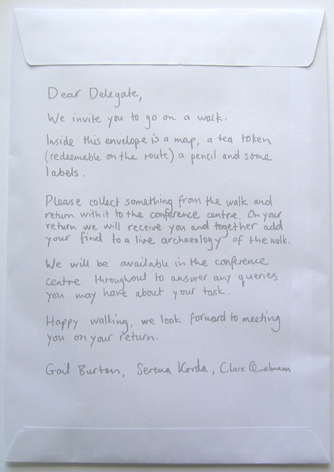 Dear Delegate,
We invite you to go on a walk.
Inside this envelope is a map, a tea token
(redeemable on the route) a pencil and some
labels.
Please collect something from the walk and
return with it to the conference centre. On your
return we will receive you and together add
your find to a live archaeology of the walk.
We will be available in the conference
centre throughout to answer any queries
you may have about your task.
Happy walking, we look forward to meeting
you on your return.
Gail Burton, Serena Korda, Clare